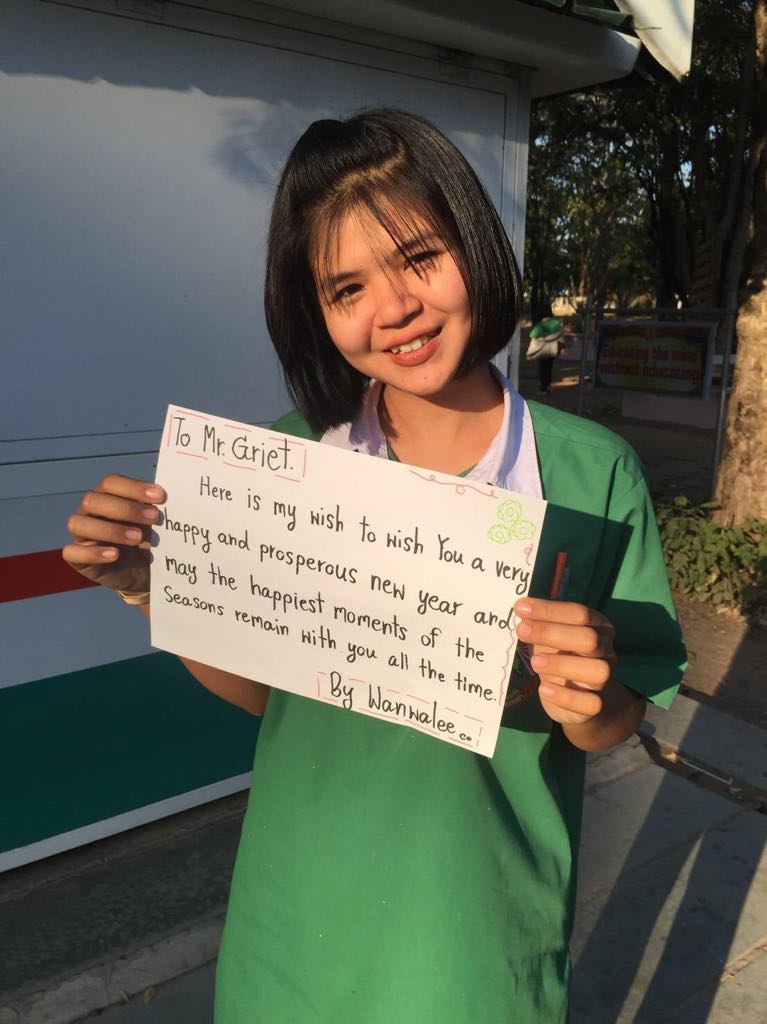 To Mr. Griet.
Here is my wish to wish You a very
happy and prosperous new year and
may the happiest moments of the
Seasons remain with you all the time.
By Wanwalee
Educating the mind
without educating